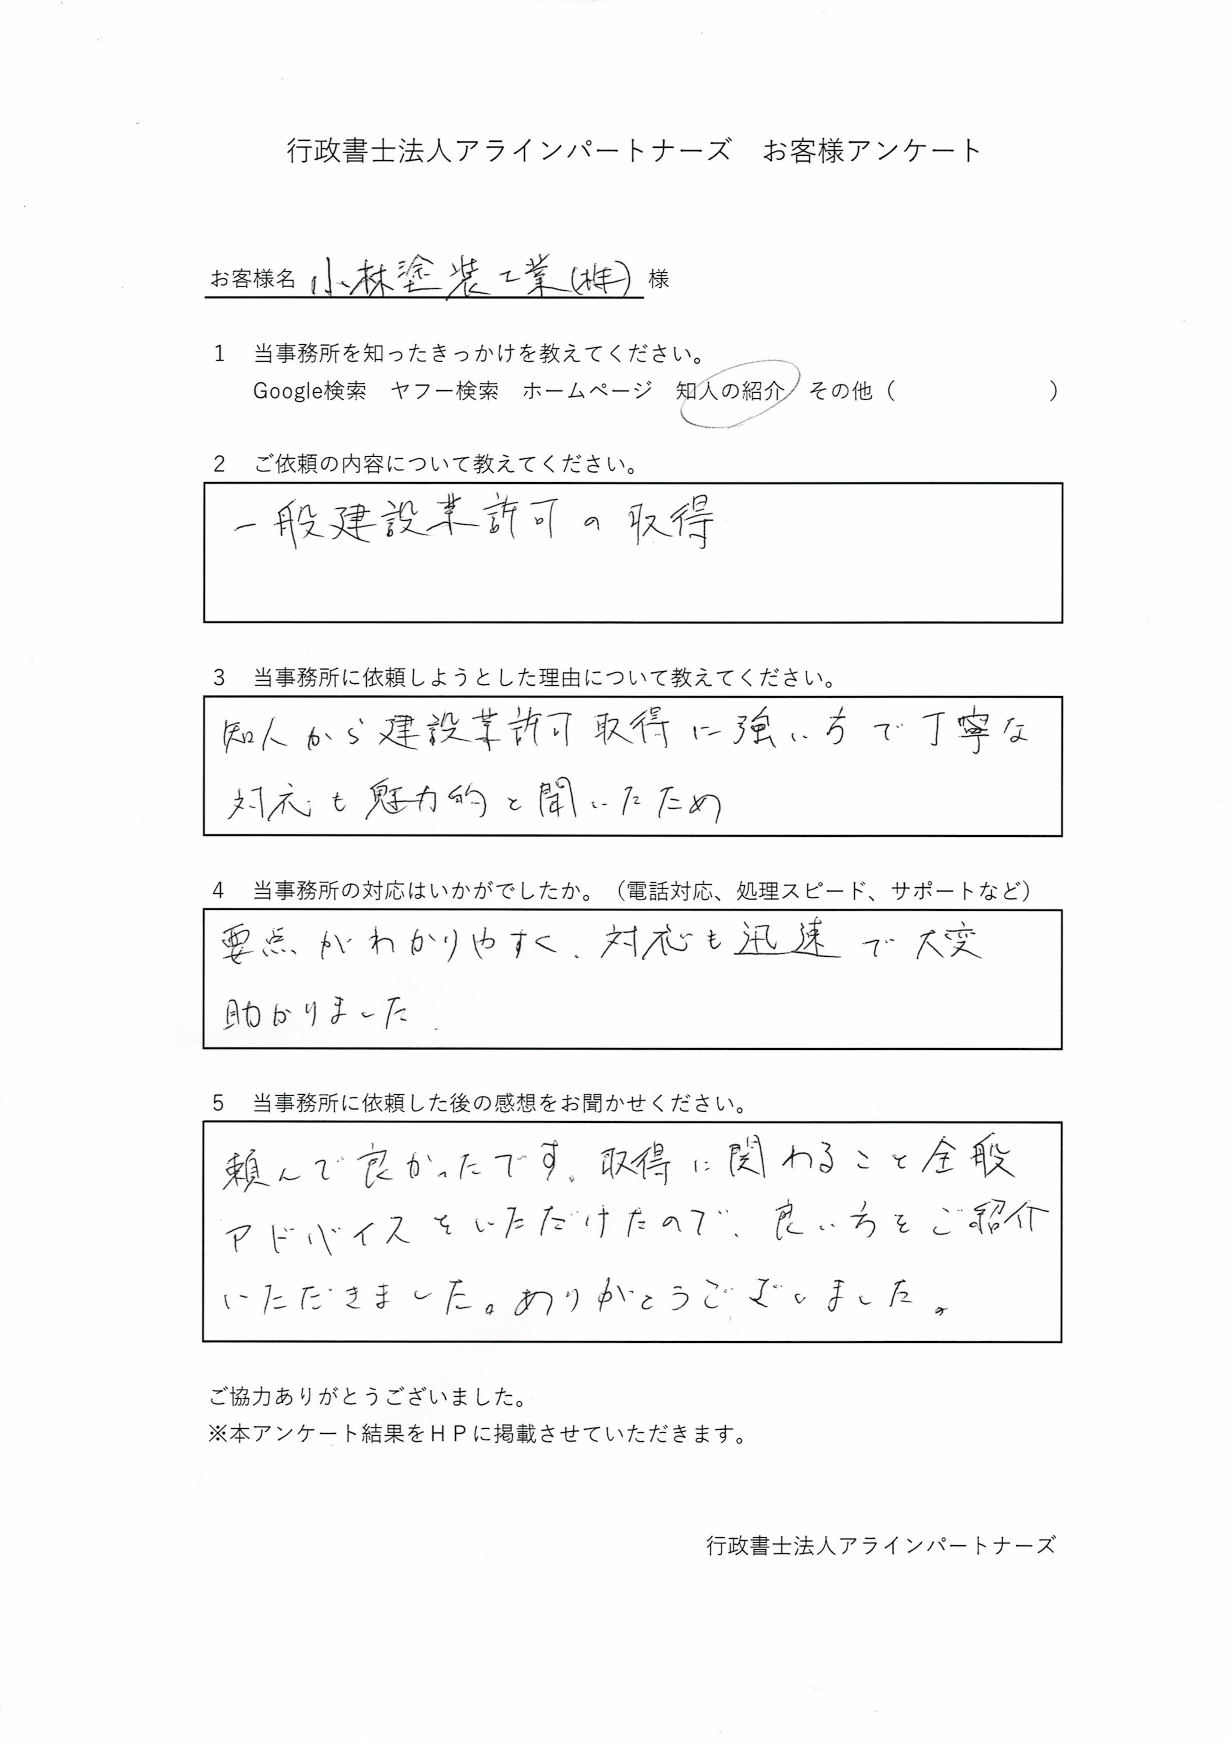 行政書士法人アラインパートナーズ　お客様アンケート
お客様名 小林塗装工業(株) 様
1　当事務所を知ったきっかけを教えてください。
Google検索　ヤフー検索　ホームページ　知人の紹介　その他（　　　　　　　）
2　ご依頼の内容について教えてください。
一般建設業許可の取得
3　当事務所に依頼しようとした理由について教えてください。
知人から建設業許可取得に強い方で丁寧な
対応も魅力的と聞いたため
4　当事務所の対応はいかがでしたか。（電話対応、処理スピード、サポートなど）
要点がわかりやすく、対応も迅速で大変
助かりました.
5　当事務所に依頼した後の感想をお聞かせください。
頼んで良かったです。取得に関わること全般
アドバイスをいただけたので、良い方をご紹介
いただきました。ありがとうございました。
ご協力ありがとうございました。
※本アンケート結果をＨＰに掲載させていただきます。
行政書士法人アラインパートナーズ